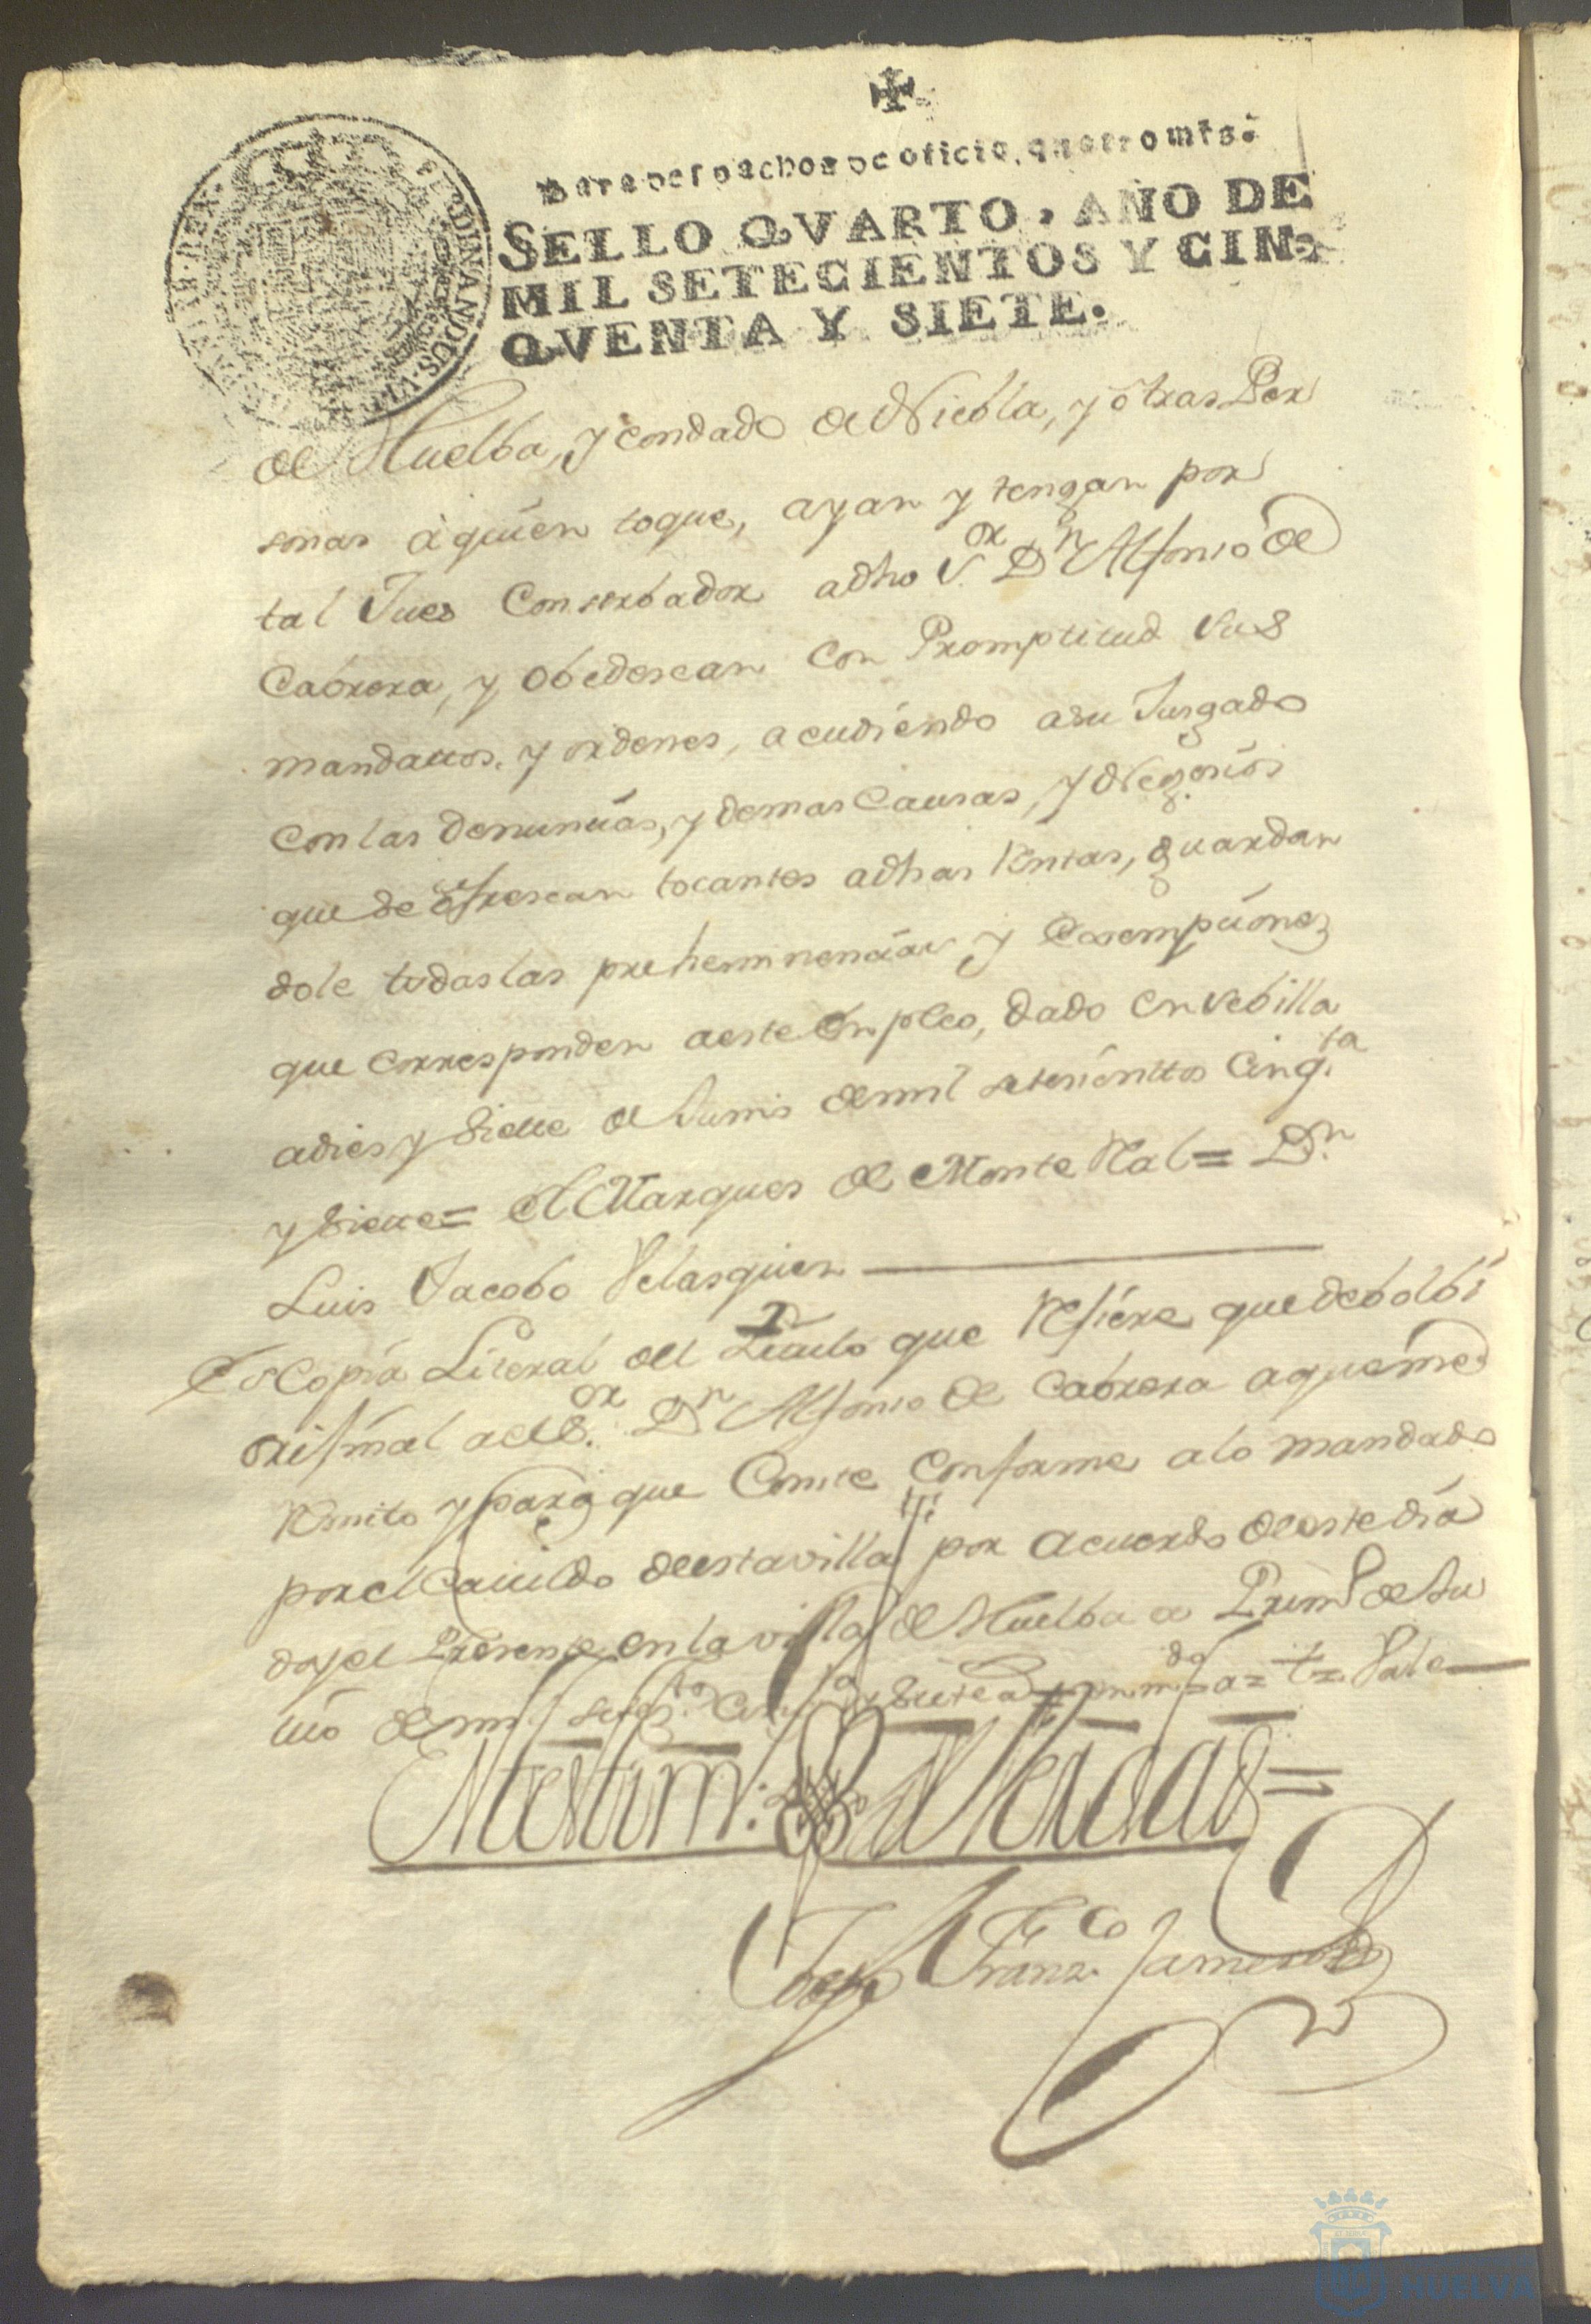 ✠
Para despachos de oficio, quatro mrs.
SELLO QVARTO, AÑO DE
MIL SETECIENTOS Y CIN-
QVENTA Y SIETE.
FERDINANDUS. VI.
de Huelba, y condado de Niebla, y otras Per
sonas á quien toque, ayan y tengan por
tal Jues Conserbador adho Sor. Dn Alfonso de
Cabrera, y obedescan con Promptitud sus
mandattos, y ordenes, acudiendo a su Jusgado
con las denuncias, y demas Causas, y Negocios
que se ofrescan tocantes adhas Rentas, guardan
dole todas las preheminencias y Exsempciones
que corresponden a este Empleo, dado en Sebilla
a dies y siette de Junio de mil setecienttos Cinqta
y Siette= El Marques de Monte Real= Dn.
Luis Jacobo Velasquez
Es Copia Literal del Titulo que Refiere que debolbi
orixinal a el Sor. Dn Alfonso de Cabrera a que me
Remito y para que Conste conforme a lo mandado
por el Cavildo de esta villa por acuerdo de este dia
doy el Presente en la villa de Huelba a Primo de Ju
lio de mil setezto. Cinqta y Siette a= = Vale
En testim: de Verdad=
Joseph Franzco
HUELVA